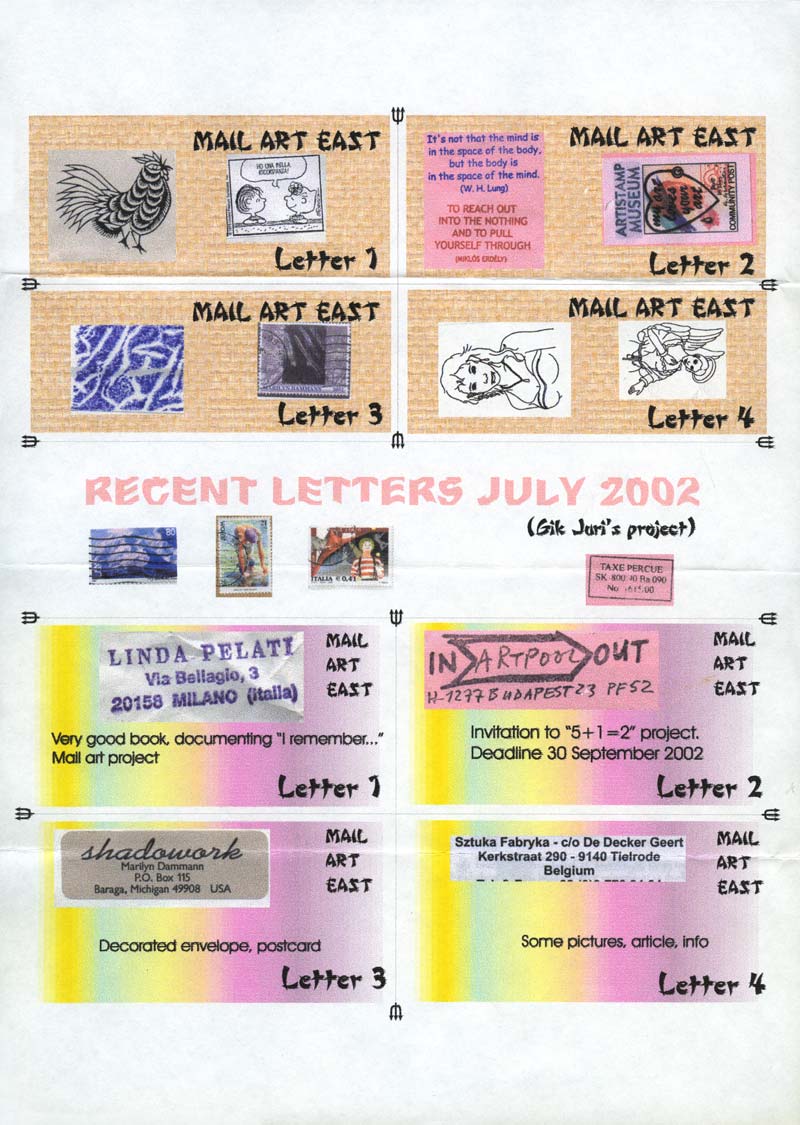 MAIL ART EAST
HO UNA BELLA
Letter 1
MAIL ART EAST
It's not that the mind is
in the space of the body,
but the body is
in the space of the mind.
(W. H. Lung)
TO REACH OUT
INTO THE NOTHING
AND TO PULL
YOURSELF THROUGH
(MIKLÓS ERDÉLY)
ARTISTAMP
MUSEUM
my art
loves
your
art
COMMUNITY POST
Letter 2
MAIL ART EAST
MARILYN DAMMANN
Letter 3
MAIL ART EAST
Letter 4
RECENT LETTERS JULY 2002
(Gik Juri's project)
80
ITALIA € 0,41
TAXE PERCUE
LINDA PELATI
Via Bellagio, 3
20158 MILANO (Italia)
MAIL
ART
EAST
Very good book, documenting "I remember..."
Mail art project
Letter 1
IN ARTPOOL OUT
H-1277 BUDAPEST 23 PF52
MAIL
ART
EAST
Invitation to "5+1=2" project.
Deadline 30 September 2002
Letter 2
shadowork
Marilyn Dammann
P.O. Box 115
Baraga, Michigan 49908 USA
MAIL
ART
EAST
Decorated envelope, postcard
Letter 3
Sztuka Fabryka - c/o De Decker Geert
Kerkstraat 290 - 9140 Tielrode
Belgium
MAIL
ART
EAST
Some pictures, article, info
Letter 4